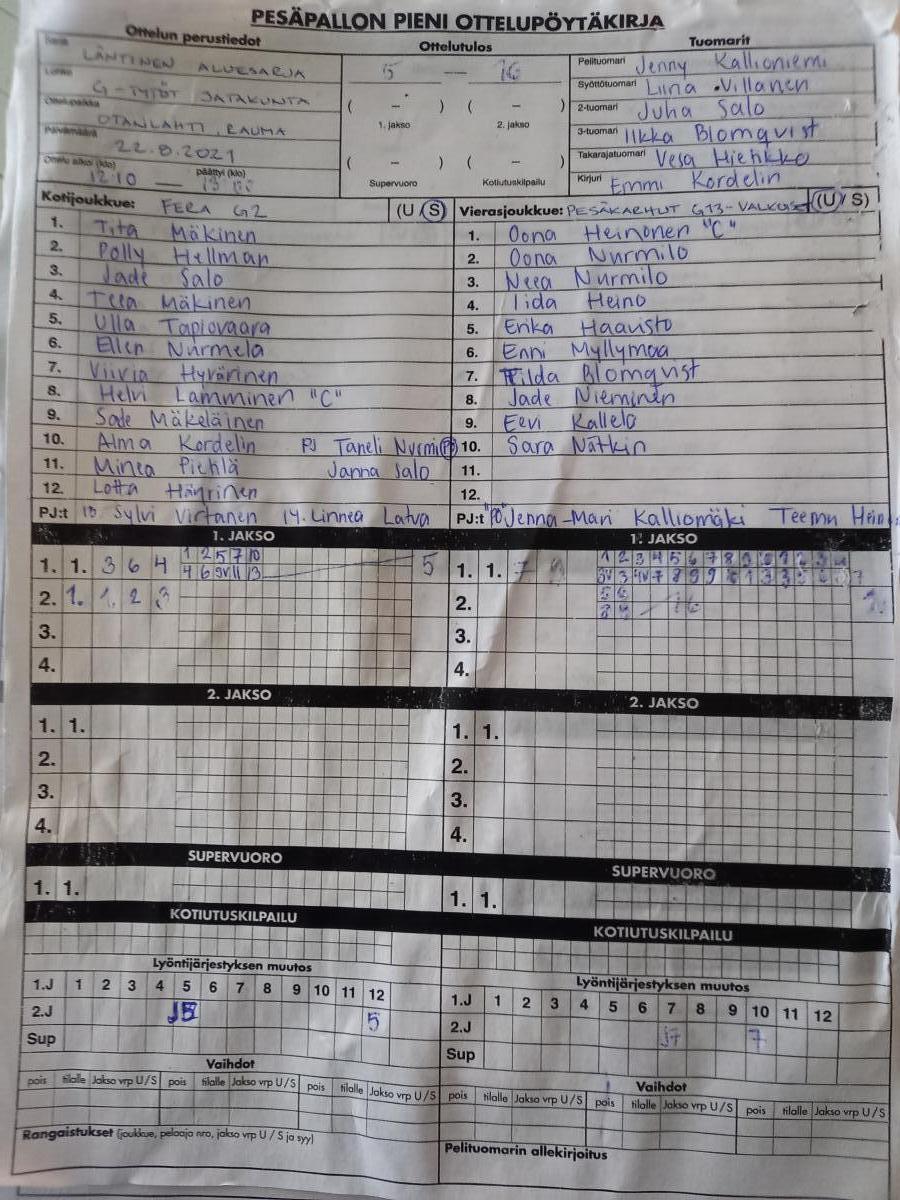 PESÄPALLON PIENI OTTELUPÖYTÄKIRJA
Ottelun perustiedot
Ottelutulos
Tuomarit
LÄNTINEN ALUESARJA
G-TYTÖT SATAKUNTA
Ottelupaikka
OTANLAHTI, RAUMA
Päivämäärä
22.8.2021
Ottelu alkoi (klo) päättyi (klo)
12:10 — 13
5 — 16
( – ) ( – )
1. jakso 2. jakso
( – ) ( – )
Supervuoro Kotiutuskilpailu
Pelituomari Jenny Kallioniemi
Syöttötuomari Liina Villanen
2-tuomari Juha Salo
3-tuomari Ilkka Blomqvist
Takarajatuomari Vesa Hiehkko
Kirjuri Emmi Kordelin
Kotijoukkue: FERA G2 (U / S)
1. Tita Mäkinen
2. Polly Hellman
3. Jade Salo
4. Teea Mäkinen
5. Ulla Tapiovaara
6. Ellen Nurmela
7. Viivia Hyvärinen
8. Helvi Lamminen "C"
9. Sade Mäkeläinen
10. Alma Kordelin PJ Taneli Nurmi
11. Minea Piehlä Janna Salo
12. Lotta Häyrinen
PJ:t 13. Sylvi Virtanen 14. Linnea Latva
Vierasjoukkue: PESÄKARHUT G13-VALKOISET (U / S)
1. Oona Heinonen "C"
2. Oona Nurmilo
3. Neea Nurmilo
4. Iida Heino
5. Erika Haavisto
6. Enni Myllymaa
7. Hilda Blomqvist
8. Jade Nieminen
9. Eevi Kallelo
10. Sara Nätkin
11.
12.
PJ:t Jenna-Mari Kalliomäki Teemu
1. JAKSO
1. 1. 3 6 4 5
1 2 5 7 10
4 6 9V 11 13
2. 1. 1. 2 3
3.
4.
1. JAKSO
1. 1.
1 2 3 4 5 6 7 8 9
2.
16
3.
4.
2. JAKSO
1. 1.
2.
3.
4.
2. JAKSO
1. 1.
2.
3.
4.
SUPERVUORO
1. 1.
SUPERVUORO
1. 1.
KOTIUTUSKILPAILU
KOTIUTUSKILPAILU
Lyöntijärjestyksen muutos
1.J 1 2 3 4 5 6 7 8 9 10 11 12
2.J 5
Sup
Lyöntijärjestyksen muutos
1.J 1 2 3 4 5 6 7 8 9 10 11 12
2.J J7 7
Sup
Vaihdot
pois tilalle Jakso vrp U/S pois tilalle Jakso vrp U/S pois tilalle Jakso vrp U/S
Vaihdot
pois tilalle Jakso vrp U/S pois tilalle Jakso vrp U/S pois tilalle Jakso vrp U/S
Rangaistukset (joukkue, pelaaja nro, jakso vrp U / S ja syy)
Pelituomarin allekirjoitus